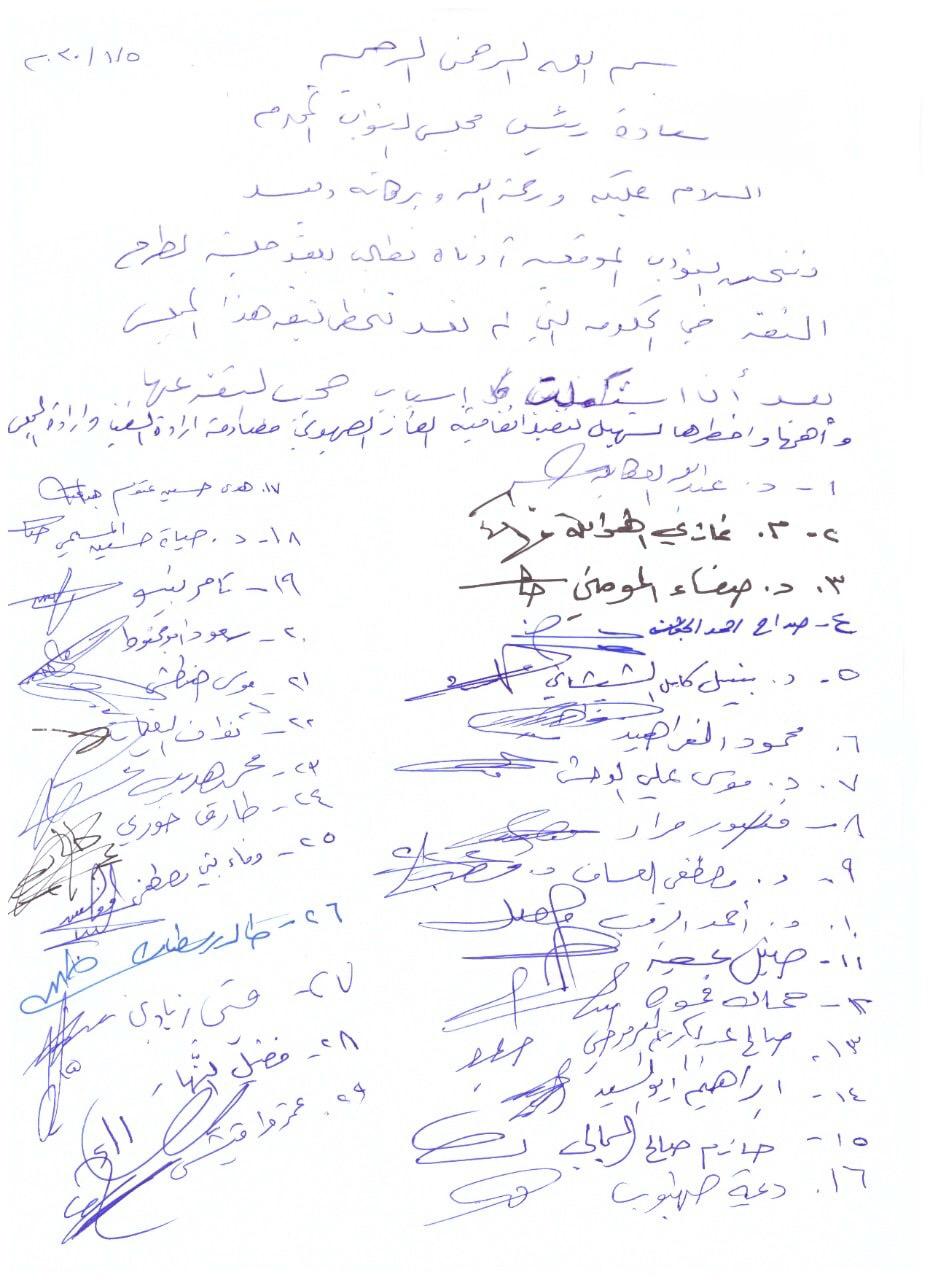 ٢٠٢٠/١/٥
بسم الله الرحمن الرحيم
سعادة رئيس مجلس النواب المحترم
السلام عليكم ورحمة الله وبركاته وبعد
فنحن النواب الموقعين أدناه نطالب بعقد جلسة لطرح
الثقة في الحكومة التي لم تعد تحظى بثقة هذا المجلس
بعد أن استكملت كل اسباب حجب الثقة عنها
وأهمها واخطرها تسهيل تنفيذ اتفاقية الغاز الصهيوني مصادمة ارادة الشعب وارادة المجلس
١- د. عبدالله العكايلة
٢- م. غازي الهواملة
٣. د. صفاء المومني
٤- صداح احمد الحباشنه
٥- د. نبيل كامل الشيشاني
٦. محمود الفراهيد
٧. د. موسى علي الوحش
٨- منصور مراد
٩- د. مصطفى العساف
١٠. د. أحمد الرقب
١١- خليل عطية
١٢- جمال قموه
١٣. صالح عبدالكريم العرموطي
١٤- ابراهيم ابوالسيد
١٥- حازم صالح المجالي
١٦. ديمة طهبوب
١٧. هدى حسين عتوم
١٨- د. حياة حسين المسيمي
١٩- تامر بينو
٢٠- سعود ابومحفوظ
٢١- موسى هنطش
٢٢- نواف
٢٣- محمد هديب
٢٤- طارق خوري
٢٥- وفاء بني مصطفى
٢٦- خالد رمضان
٢٧- قيس زيادين
٢٨- فضيل النهار
٢٩. عمر قراقيش